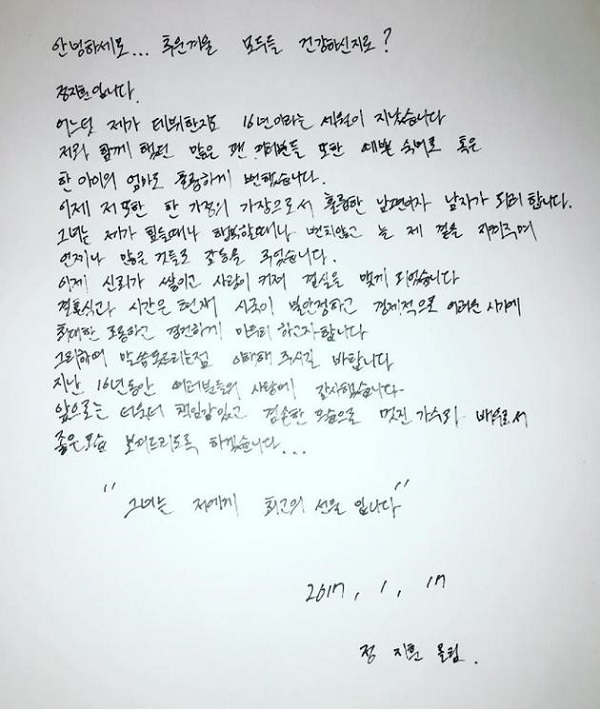 안녕하세요... 추운겨울 모두들 건강하신지요?
정지훈입니다.
어느덧 제가 데뷔한지 16년이라는 세월이 지났습니다
저와 함께 했던 많은 팬 여러분들 또한 예쁜 숙녀로 혹은
한 아이의 엄마로 훌륭하게 변했습니다.
이제 저 또한 한 가정의 가장으로서 훌륭한 남편이자 남자가 되려 합니다.
그녀는 제가 힘들때나 행복할때나 변치않고 늘 제 곁을 지켜주며
언제나 많은 것들로 감동을 주었습니다.
이제 신뢰가 쌓이고 사랑이 커져 결실을 맺게 되었습니다
결혼식과 시간은 현재 시국이 불안정하고 경제적으로 어려운 시기에
최대한 조용하고 경건하게 마무리 하고자합니다
그리하여 말씀못드리는점 이해해 주시길 바랍니다
지난 16년동안 여러분들의 사랑에 감사했습니다
앞으로는 더욱더 책임감있고 겸손한 모습으로 멋진 가수와 배우로서
좋은모습 보여드리도록 하겠습니다...
"그녀는 저에게 최고의 선물 입니다"
2017. 1. 17
정 지훈 올림.